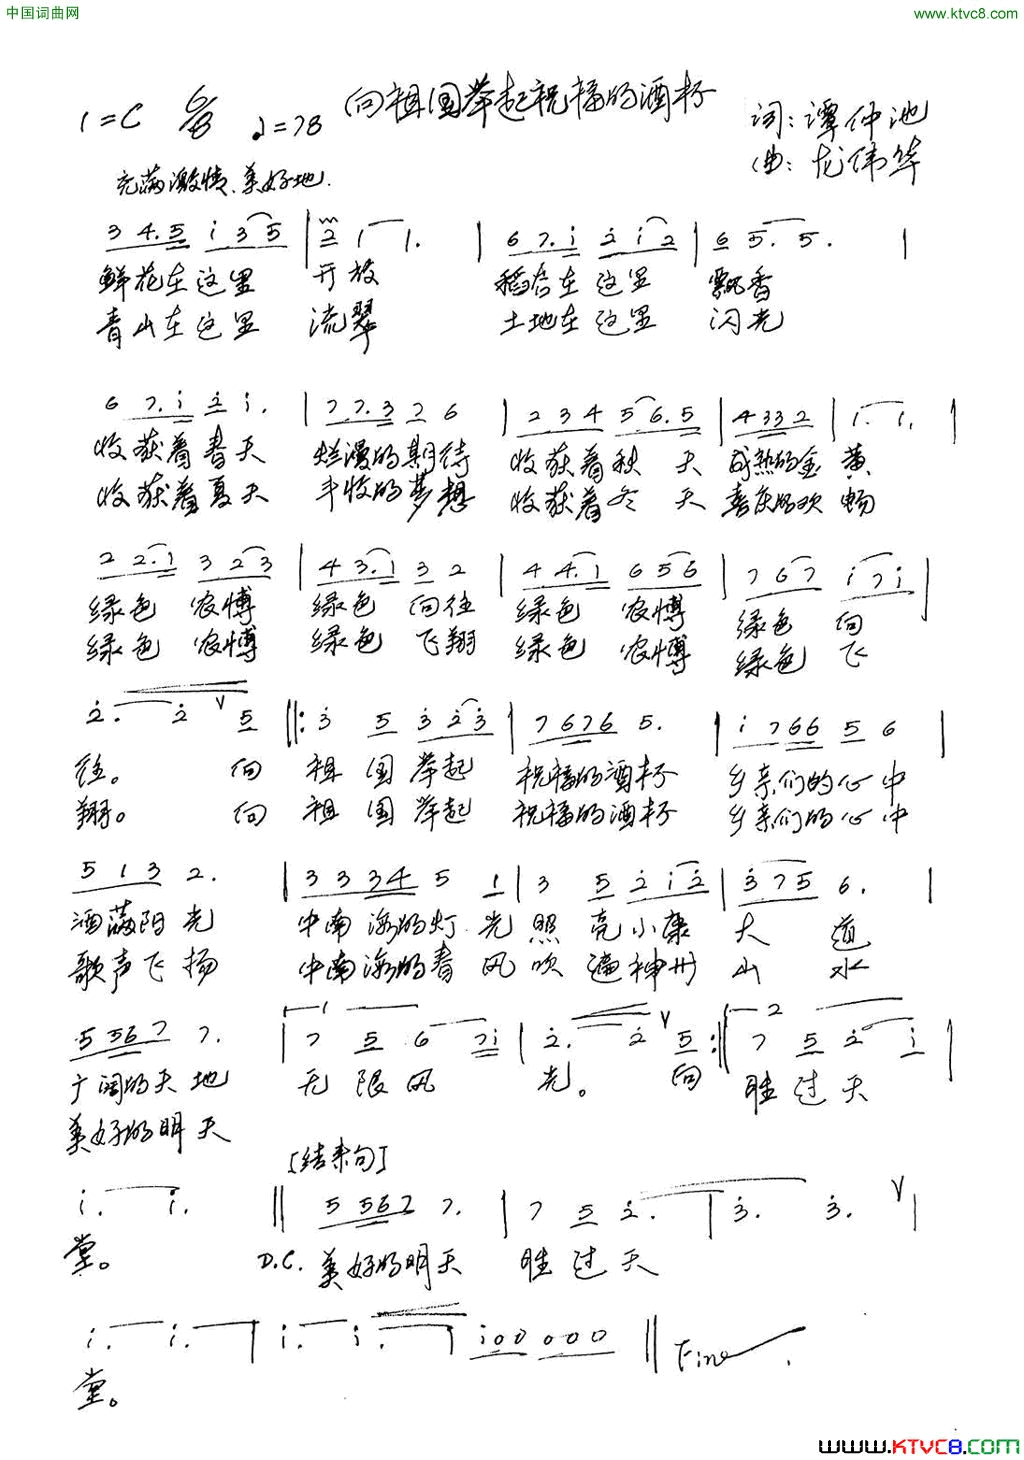 中国词曲网
www.ktvc8.com
向祖国举起祝福的酒杯
1=C 6/8 ♩=78
词：谭仲池
曲：龙伟华
充满激情、美好地.
3 4. 5 i 3 5 | 2 1 1. | 6 7. i 2 i 2 | 6 5. 5. |
鲜花在这里 开放 稻谷在这里 飘香
青山在这里 流翠 土地在这里 闪光
6 7. i 2 i. | 7 7. 3 2 6 | 2 3 4 5 6. 5 | 4 3 3 2 | 1. 1. |
收获着春天 烂漫的期待 收获着秋天 成熟的金黄
收获着夏天 丰收的梦想 收获着冬天 喜庆的欢畅
2 2. 1 3 2 3 | 4 3. 1 3 2 | 4 4. 1 6 5 6 | 7 6 7 i 7 i |
绿色 农博 绿色 向往 绿色 农博 绿色 向
绿色 农博 绿色 飞翔 绿色 农博 绿色 飞
2. 2 V 5 ‖: 3 5 3 2 3 | 7 6 7 6 5. | i 7 6 6 5 6 |
往。 向 祖国举起 祝福的酒杯 乡亲们的心中
翔。 向 祖国举起 祝福的酒杯 乡亲们的心中
5 1 3 2. | 3 3 3 4 5 1 | 3 5 2 i 2 | 3 7 5 6. |
洒满阳光 中南海的灯光照亮小康大道
歌声飞扬 中南海的春风吹遍神州山水
5 5 6 7 7. | 1 7 5 6 7 i | 2. 2 V 5 :‖ 2 7 5 2 i |
广阔的天地 无限风光。 向 胜过天
美好的明天
[结束句]
i. i. ‖ 5 5 6 7 7. | 7 5 2. | 3. 3. V |
堂。 D.C. 美好的明天 胜过天
i. i. | i. i. | i 0 0 0 0 0 ‖ Fine
堂。
www.KTVC8.com